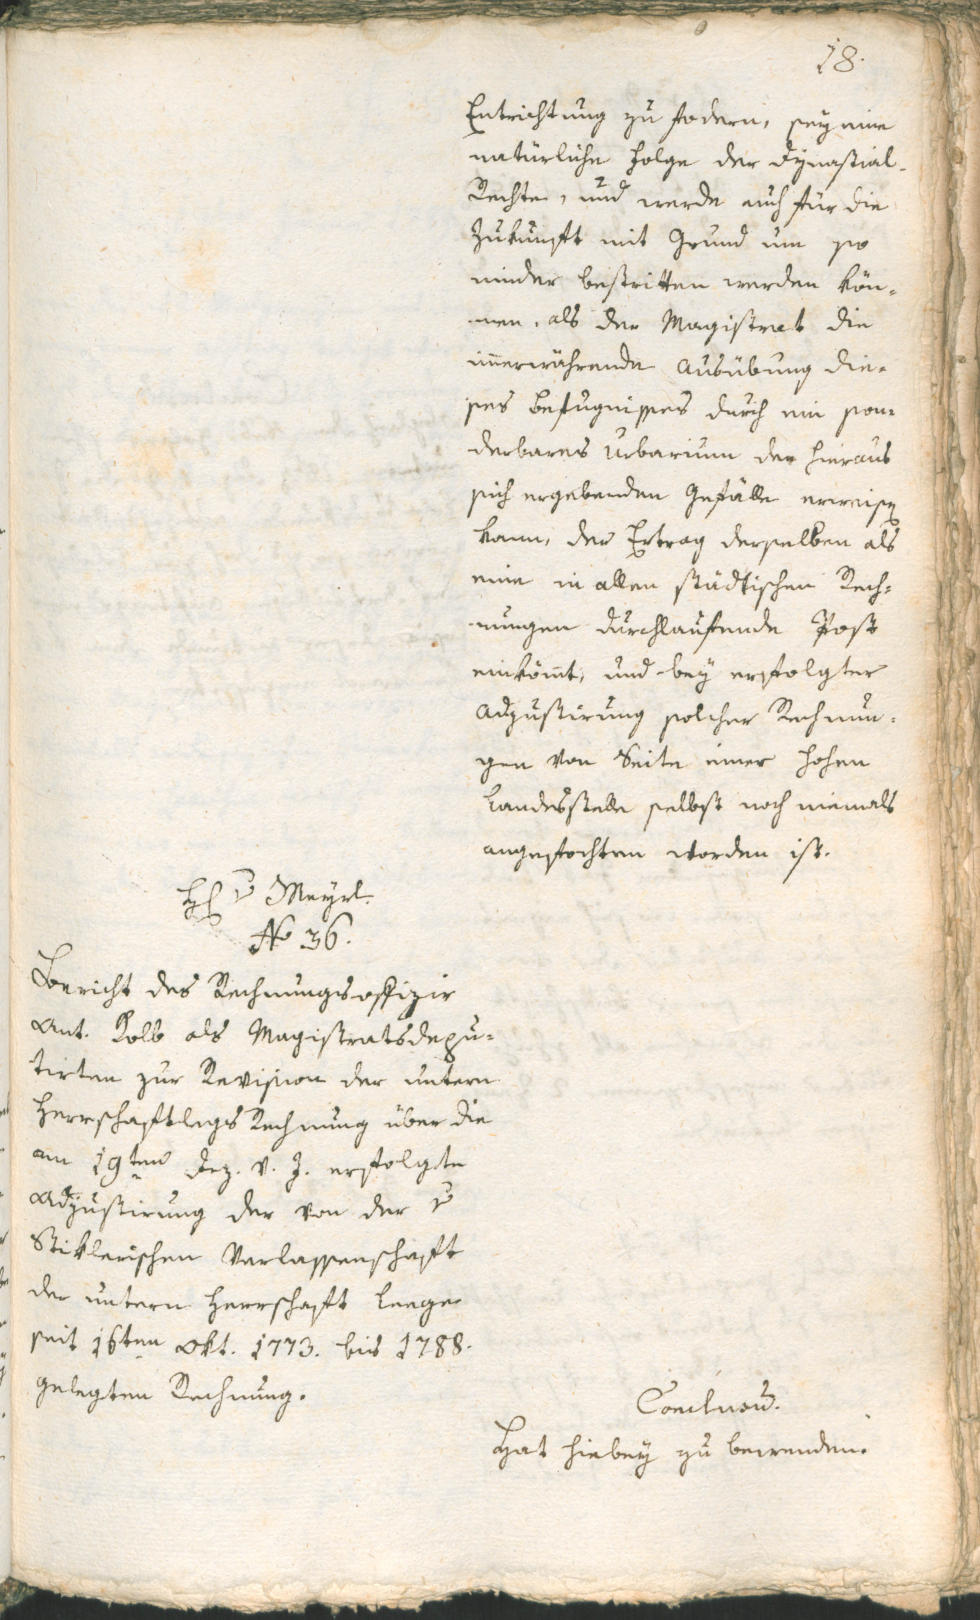 18.
Entrichtung zu fodern, sey eine
natürliche Folge der Dynastial-
Rechte, und werde auch für die
Zukunft mit Grund um so
minder bestritten werden kön-
nen, als der Magistrat die
im̄erwährende Ausübung die-
ses Befugnisses durch ein son-
derbares Urbarium der hieraus
sich ergebenden Gefälle erweisen
kann, der Ertrag derselben als
eine in allen städtischen Rech-
nungen durchlaufende Post
einköm̄t, und bey erfolgter
Adjustirung solcher Rechnun-
gen von Seite einer hohen
Landesstelle selbst noch niemals
angefochten worden ist.
H v Meyrl.
No 36.
Bericht des Rechnungsoffizir
Ant. Kolb als Magistratsdepu-
tirten zur Revision der untern
Herrschaftlegs Rechnung über die
am 19ten Dez. v. J. erfolgte
Adjustirung der von der v
Stiklerischen Verlassenschaft
der untern Herrschaft Leege
seit 16ten Okt. 1773. bis 1788.
gelegten Rechnung.
Conclusum.
Hat hiebey zu bewenden.